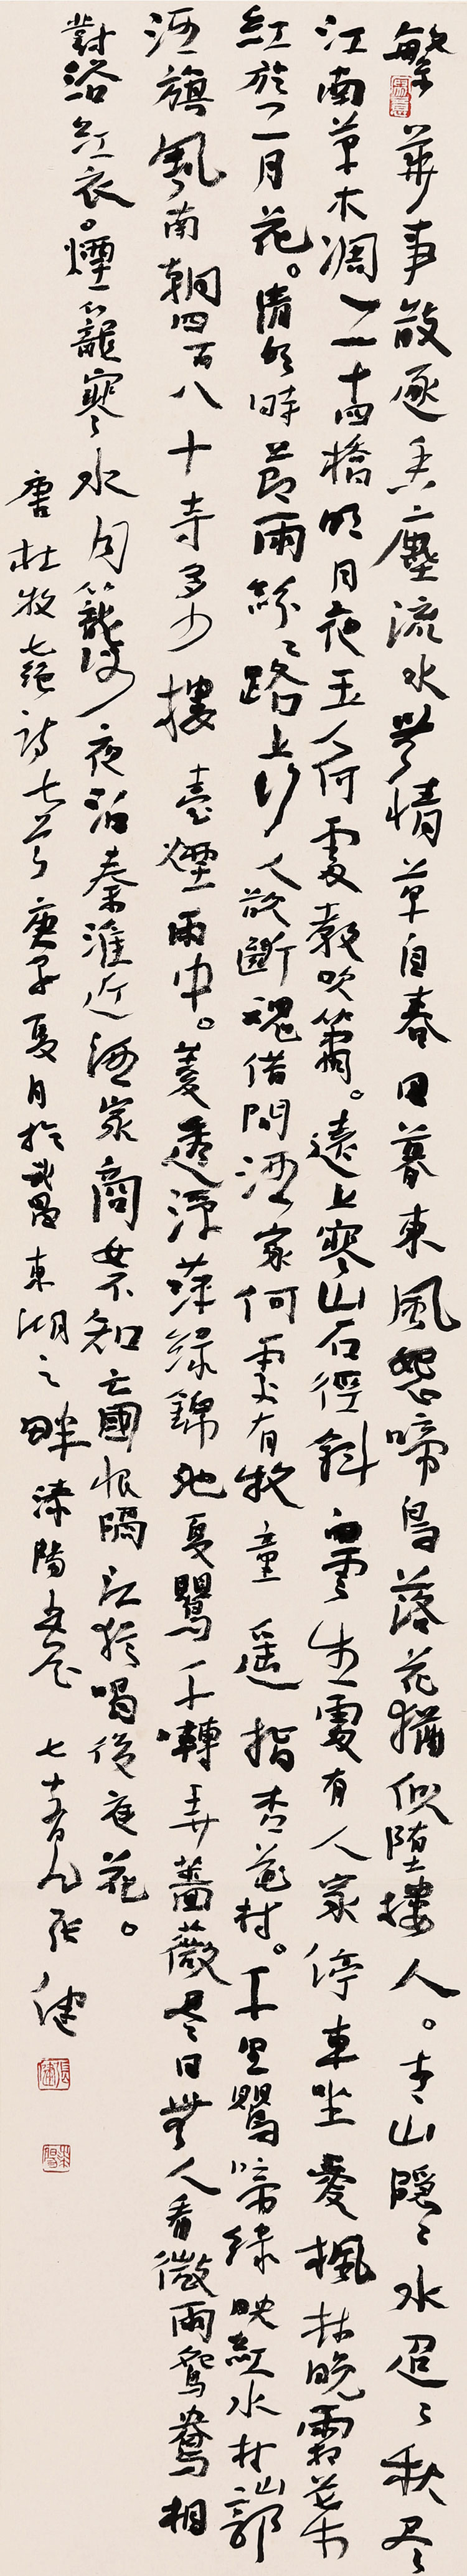 繁華事散逐香塵流水無情草自春日暮東風怨啼鳥落花猶似墮樓人。青山隱〻水迢〻秋盡
江南草木凋二十四橋明月夜玉人何處教吹簫。遠上寒山石徑斜白雲生處有人家停車坐愛楓林晚霜葉
紅於二月花。清明時節雨紛〻路上行人欲斷魂借問酒家何處有牧童遥指杏花村。千里鶯啼綠映紅水村山郭
酒旗風南朝四百八十寺多少樓臺煙雨中。菱透浮萍綠錦池夏鶯千囀弄薔薇盡日無人看微雨鴛鴦相
對浴紅衣。煙籠寒水月籠沙夜泊秦淮近酒家商女不知亡國恨隔江猶唱後庭花。
唐杜牧七絕詩七首庚子夏月於武昌東湖之畔溧陽 七十 張健
張健